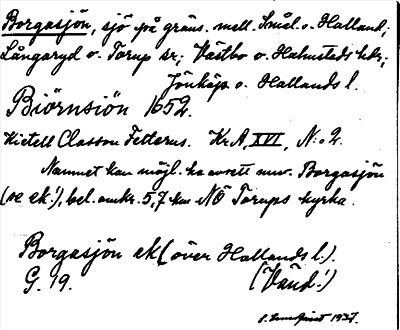 Borgasjön, sjö på gräns. mell. Smål. o. Halland;
Långaryd o. Torup sr; Västbo o. Halmsteds hdr;
Jönköp o. Hallands l.
Biörnsiön 1652.
Kietell Classon Felterus. Kr.A, XVI, N:o 2.
Namnet kan möjl. ha avsett nuv. Borgasjön
(se ek.!), bel. omkr. 5,7 km NÖ Torups kyrka.
Borgasjön ek (över Hallands l.).
G. 19. (Vänd!)
1937.